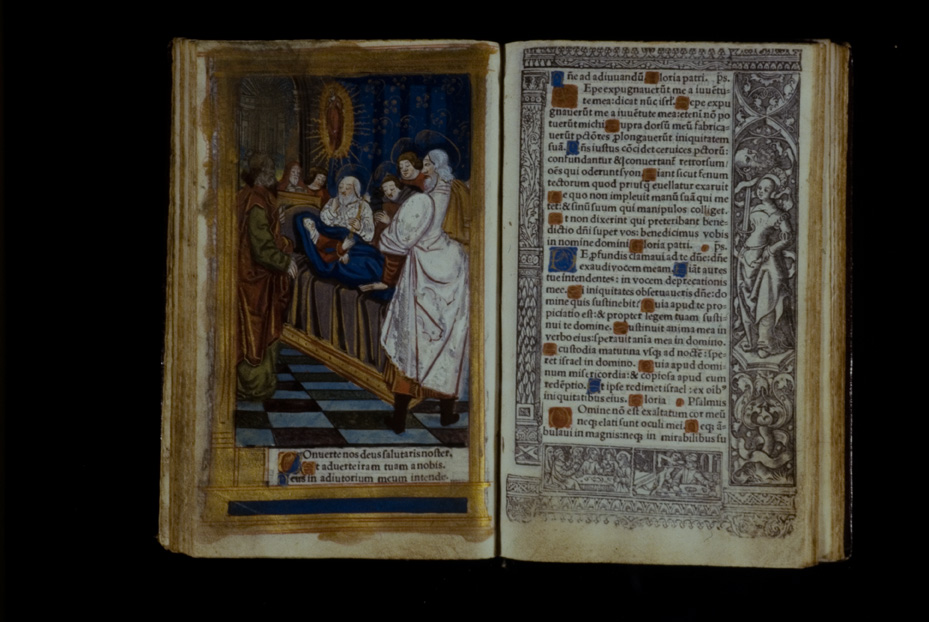 Onuerte nos deus salutaris noster,
Et aduerte iram tuam a nobis.
Deus in adiutorium meum intende.
ñe ad adiuuandū Gloria patri. ps.
Sepe expugnauerūt me a iuuētu-
te mea: dicat nūc isrl. Sepe expu
gnauerūt me a iuuētute mea: eteni nō po
tuerūt michi Supra dorsū meū fabrica-
uerūt pctōres plongauerūt iniquitatem
suā. Dñs iustus cōcidet ceruices pctorū:
confundantur & cōuertant retrorsum
oēs qui oderunt syon. Fiant sicut fenum
tectorum quod priusq̄ euellatur exaruit
De quo non impleuit manū suā qui me
tet: & sinū suum qui manipulos colliget.
Et non dixerint qui preteribant bene-
dictio dñi super vos: benedicimus vobis
in nomine domini Gloria patri. ps.
DE pfundis clamaui ad te dñe: dñe
exaudi vocem meam. Fiāt autes
tue intendentes: in vocem deprecationis
mee. Si iniquitates obseruaueris dñe: do
mine quis sustinebit? Quia apud te pro-
piciatio est: & propter legem tuam susti-
nui te domine. Sustinuit anima mea in
verbo eius: sperauit aīa mea in domino.
A custodia matutina vsq̄ ad noctē: spe-
ret israel in domino. Quia apud domi-
num misericordia: & copiosa apud eum
redēptio. Et ipse redimet israel: ex oib⁹
iniquitatibus eius. Gloria Psalmus
Domine nō est exaltatum cor meū
neq̄ elati sunt oculi mei. Neq̄ ā-
bulaui in magnis: neq̄ in mirabilibus su